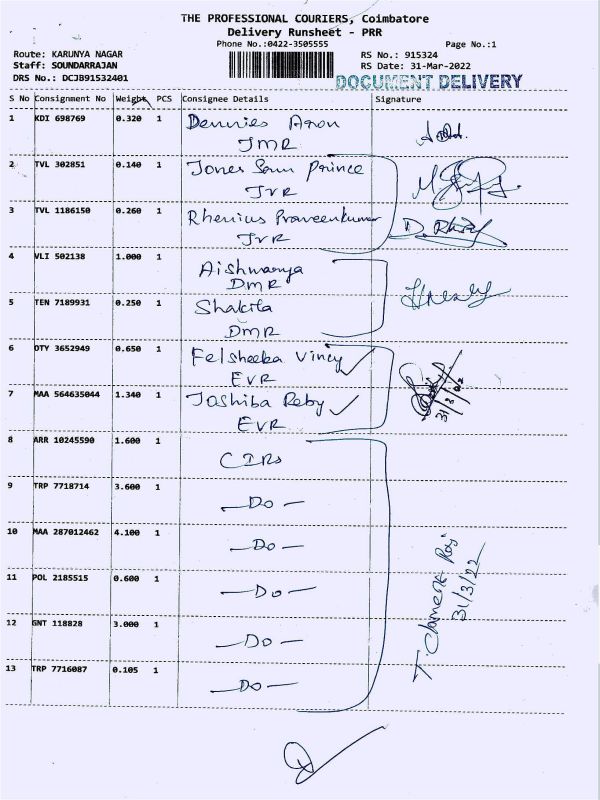 THE PROFESSIONAL COURIERS, Coimbatore
Delivery Runsheet - PRR
Phone No.:0422-3505555
Page No.:1
Route: KARUNYA NAGAR
RS No.: 915324
Staff: SOUNDARRAJAN
RS Date: 31-Mar-2022
DRS No.: DCJB91532401
DOCUMENT DELIVERY
S No Consignment No Weight PCS Consignee Details Signature
1 KDI 698769 0.320 1 Dennies Aron
JMR
2 TVL 302851 0.140 1 Jones Sam Prince
JVR
3 TVL 1186150 0.260 1 Rhenius Praveenkumar
JVR
4 VLI 502138 1.000 1 Aishwarya
DMR
5 TEN 7189931 0.250 1 Shakila
DMR
6 OTY 3652949 0.650 1 Felsheeba Vincy
EVR
7 MAA 564635044 1.340 1 Jashiba Reby
EVR
31/3/22
8 ARR 10245590 1.600 1 CIRs
9 TRP 7718714 3.600 1 -Do-
10 MAA 287012462 4.100 1 -Do-
11 POL 2185515 0.600 1 -Do-
12 GNT 118828 3.000 1 -Do-
13 TRP 7716087 0.105 1 -Do-
31/3/22